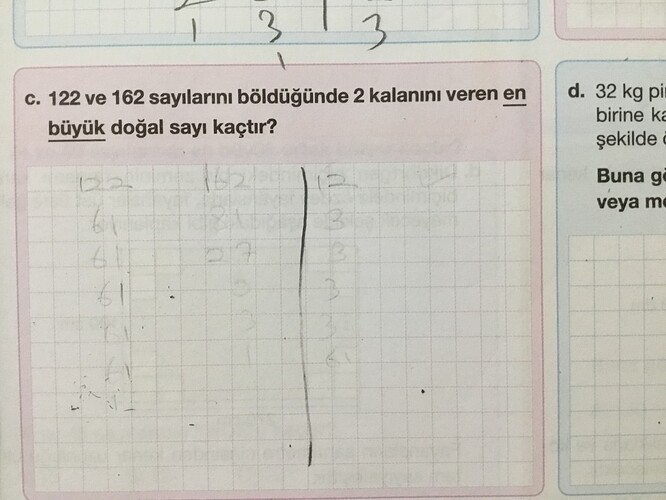 1 3 3
1
c. 122 ve 162 sayılarını böldüğünde 2 kalanını veren en
büyük doğal sayı kaçtır?
122 162 | 2
61 81 3
61 27 3
61 9 3
61 3 3
61 1 61
d. 32 kg
birine
şekilde
Buna
veya